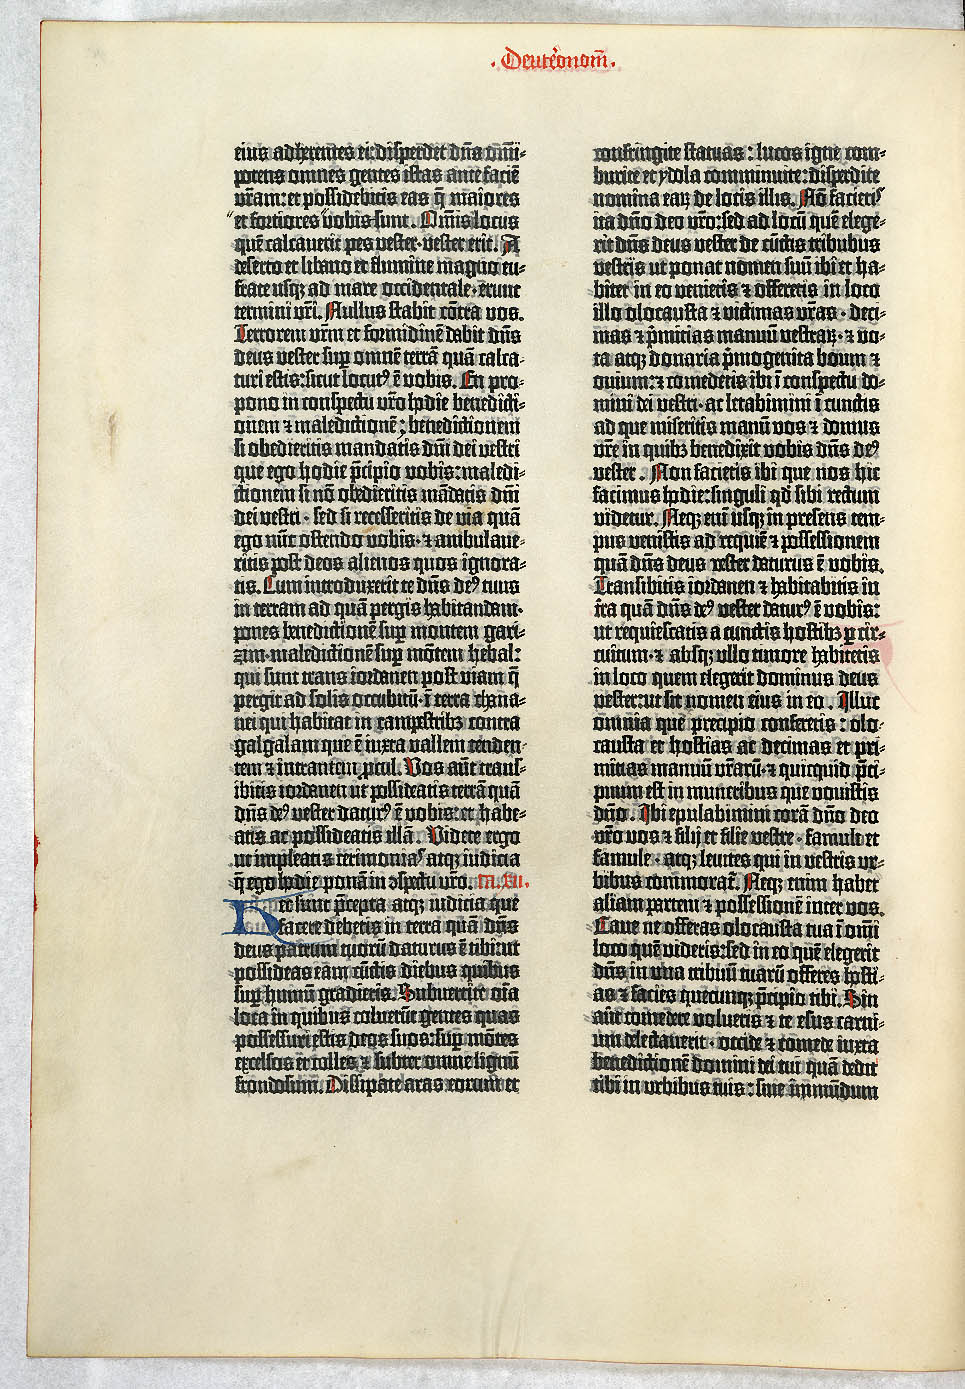 .Deut̄onom̄.
eius adherentes ei: disperdet dn̄s om̄i-
potens omnes gentes istas ante faciē
vr̄am: et possidebitis eas q̄ maiores
et fortiores vobis sunt. Om̄is locus
quē calcauerit pes vester· vester erit. A
deserto et libano et flumine magno eu-
frate usqꝫ ad mare occidentale· erunt
termini vr̄i. Nullus stabit cōtra vos.
Terrorem vr̄m et formidinē dabit dn̄s
deus vester sup̄ omnē terrā quā calca-
turi estis: sicut locutꝰ ē vobis. En pro-
pono in conspectu vr̄o hodie benedicti-
onem ⁊ maledictionē; benedictionem
si obedieritis mandatis dn̄i dei vestri
que ego hodie p̄cipio vobis: maledi-
ctionem si nō obedieritis mādatis dn̄i
dei vestri· sed si recesseritis de via quā
ego nūc ostendo vobis· ⁊ ambulaue-
ritis post deos alienos quos ignora-
tis. Cum introduxerit te dn̄s deꝰ tuus
in terram ad quā pergis habitandam·
pones benedictionē sup̄ montem gari-
zim· maledictionē sup̄ mōtem hebal:
qui sunt trans iordanen post viam q̄
pergit ad solis occubitū· ī terra chana-
nei qui habitat in campestribꝫ contra
galgalam que ē iuxta vallem tenden-
tem ⁊ intrantem procul. Vos aūt trans-
ibitis iordanen ut possideatis terrā quā
dn̄s deꝰ vester daturꝰ ē vobis: et habe-
atis ac possideatis illā. Videte ergo
ut impleatis cerimoniaſ atqꝫ iudicia
q̄ ego hodie ponā in ꝯspectu vr̄o. ca. xii.
Hec sunt p̄cepta atqꝫ iudicia que
facere debetis in terra quā dn̄s
deus patrum tuorū daturus ē tibi: ut
possideas eam cūctis diebus quibus
sup̄ humū gradieris. Subuertite oīa
loca in quibus coluerūt gentes quas
possessuri estis deos suos: sup̄ mōtes
excelsos et colles ⁊ subter omne lignū
frondosum. Dissipate aras eorum et
confringite statuas: lucos igne com-
burite et ydola comminuite: disperdite
nomina eaꝝ de locis illis. Nō facietiſ
ita dn̄o deo vr̄o: sed ad locū quē elege-
rit dn̄s deus vester de cūctis tribubus
vestris ut ponat nomen suū ibi et ha-
bitet in eo venietis ⁊ offeretis in loco
illo olocausta ⁊ victimas vr̄as· deci-
mas ⁊ p̄mitias manuū vestraꝝ· ⁊ vo-
ta atqꝫ donaria p̄mogenita boum ⁊
ouium: ⁊ comedetis ibi ī conspectu do-
mini dei vestri· ac letabimini ī cunctis
ad que miseritis manū vos ⁊ domus
vr̄e in quibꝫ benedixit vobis dn̄s deꝰ
vester. Non facietis ibi que nos hic
facimus hodie: singuli qd̄ sibi rectum
videtur. Neqꝫ eni usqꝫ in presens tem-
pus venistis ad requiē ⁊ possessionem
quā dn̄s deus vester daturus ē vobis.
Transibitis iordanen ⁊ habitabitis in
tr̄a quā dn̄s deꝰ vester daturꝰ ē vobis:
ut requiescatis a cunctis hostibꝫ ꝑ cir-
cuitum· ⁊ absqꝫ ullo timore habitetis
in loco quem elegerit dominus deus
vester: ut sit nomen eius in eo. Illuc
omnia que precipio conferetis: olo-
causta et hostias ac decimas et pri-
mitias manuū vr̄arū· ⁊ quicquid p̄ci-
puum est in muneribus que vouistis
dn̄o. Ibi epulabimini corā dn̄o deo
vr̄o vos ⁊ filij et filie vestre· famuli et
famule· atqꝫ leuites qui in vestris ur-
bibus commorat̄. Neqꝫ enim habet
aliam partem ⁊ possessionē inter vos.
Caue ne offeras olocausta tua ī om̄i
loco quē videris: sed in eo quē elegerit
dn̄s in una tribuū tuarū offeres hosti-
as ⁊ facies quecunqꝫ p̄cipio tibi. Sin
aūt comedere volueris ⁊ te esus carni-
um delectauerit· occide ⁊ comede iuxta
benedictionē domini dei tui quā dedit
tibi in urbibus tuis: siue īmundum